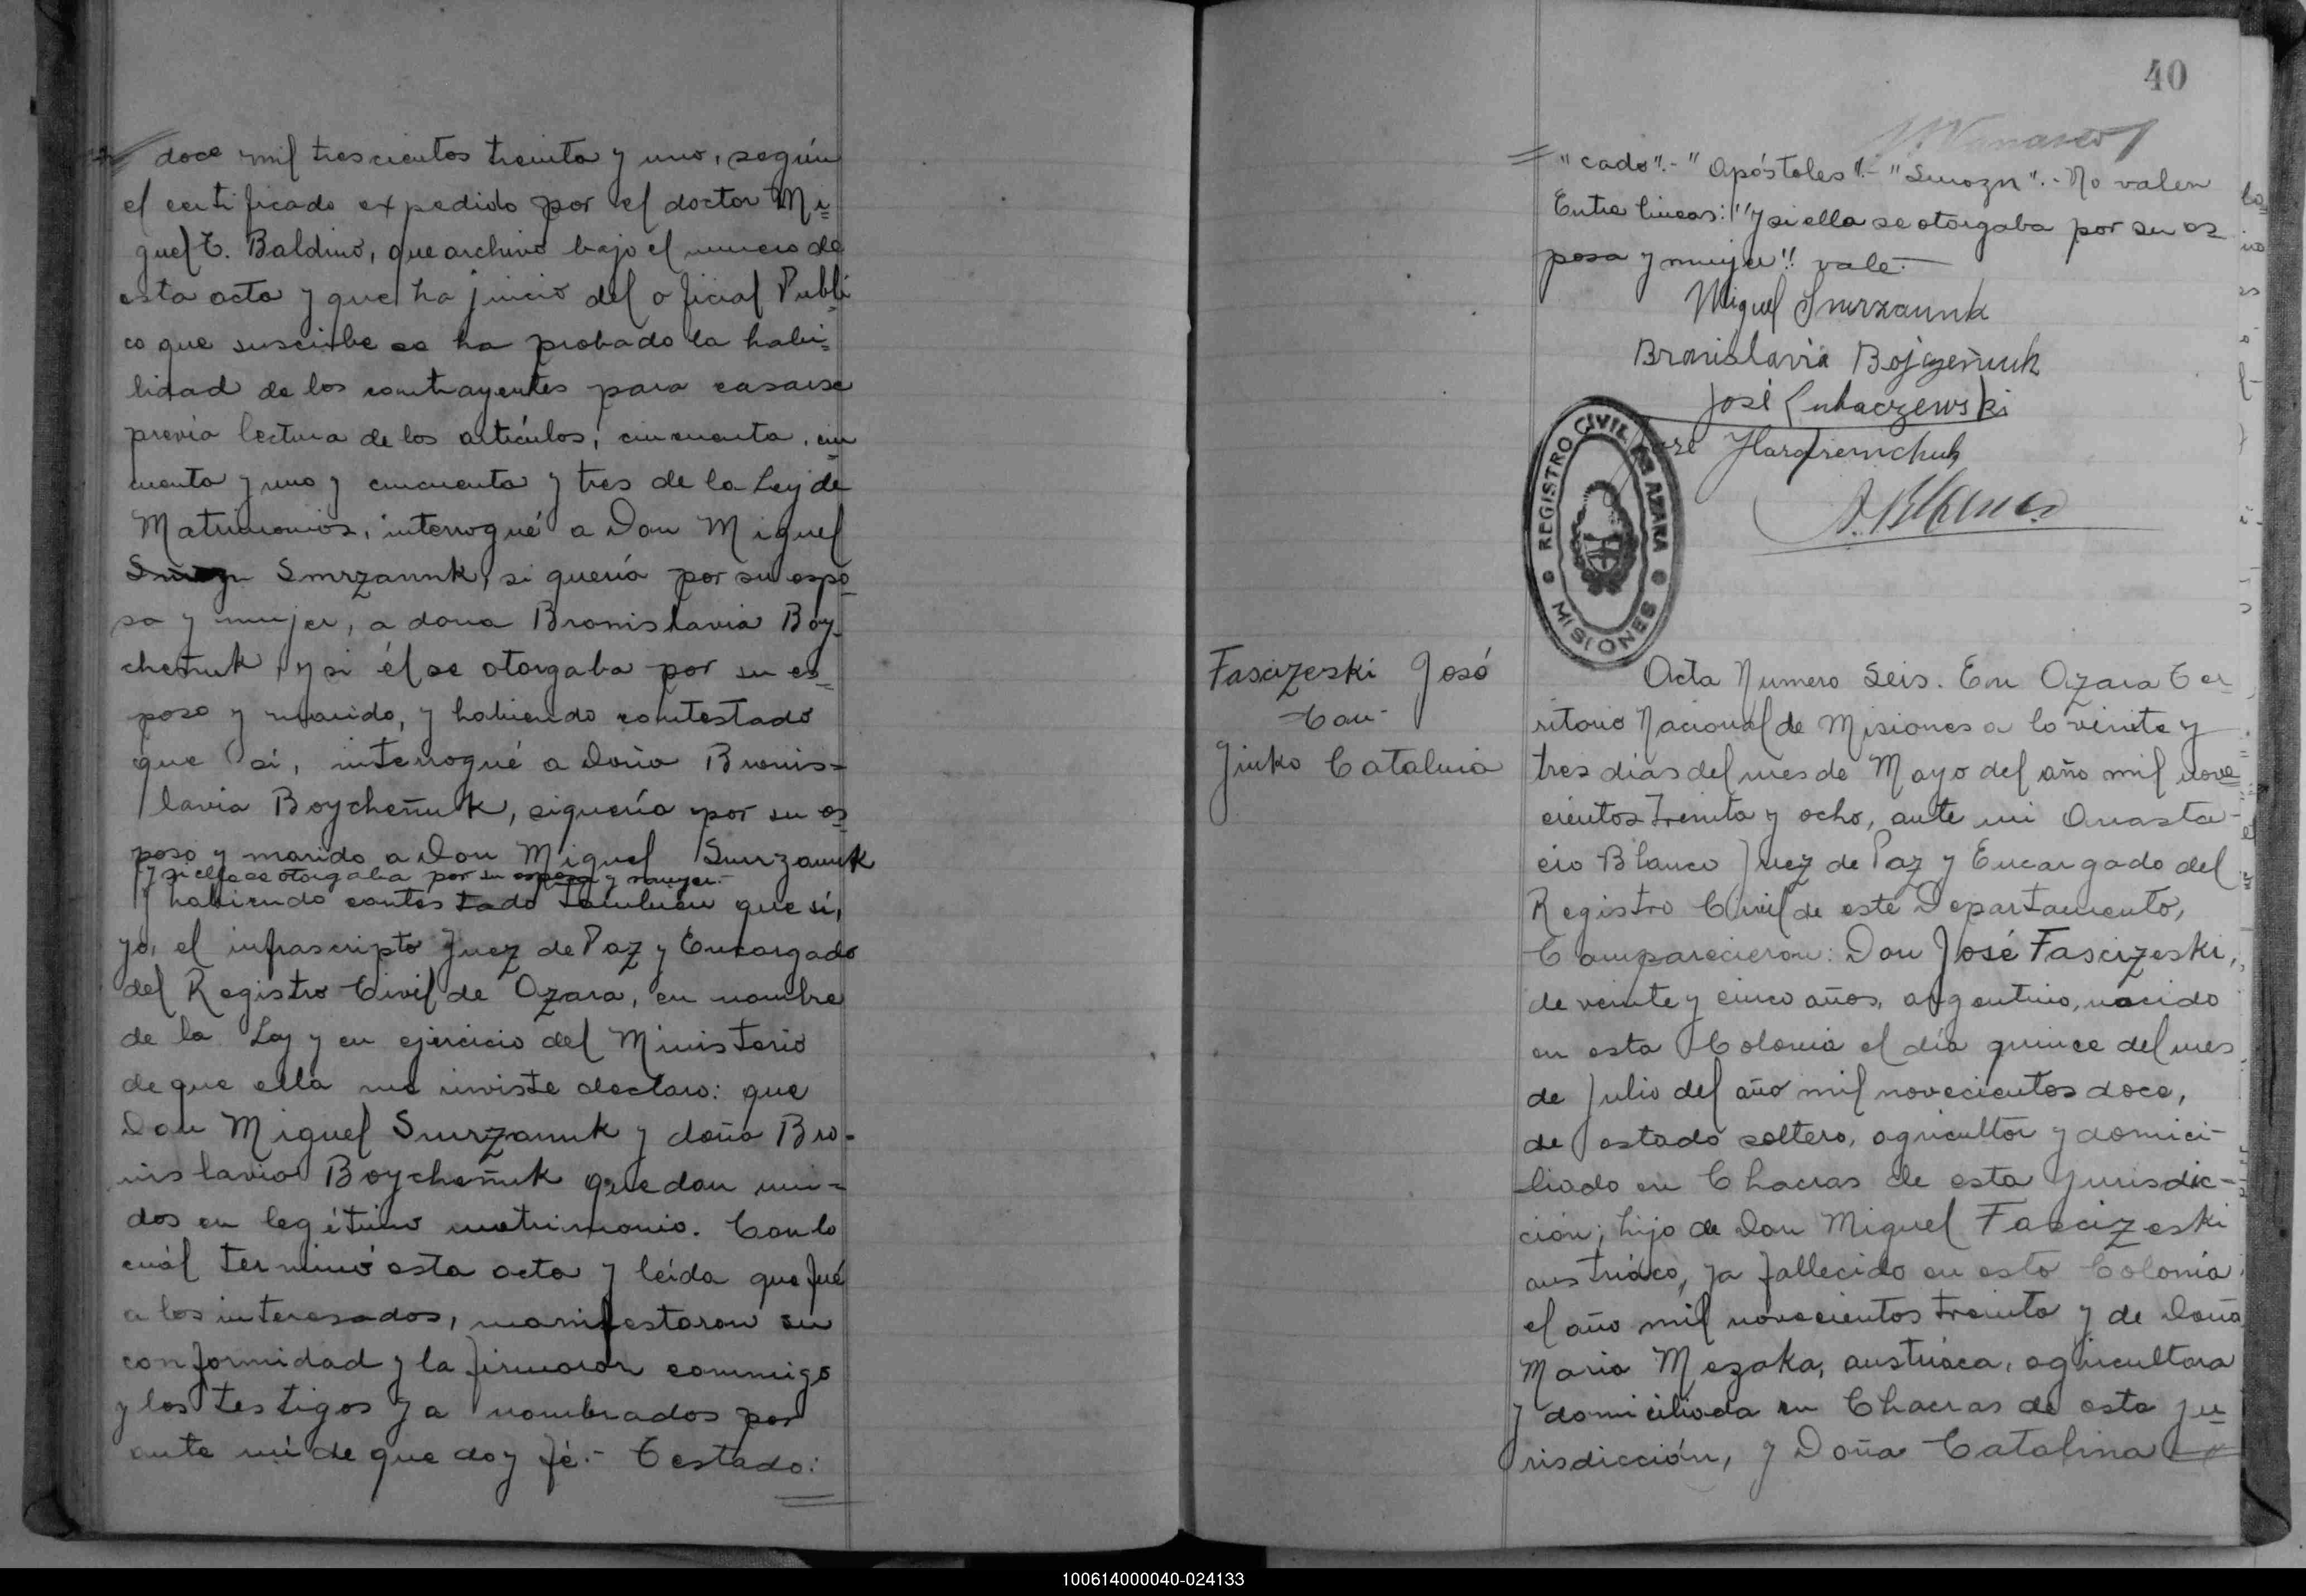 doce mil trescientos treinta y uno, según
el certificado expedido por el doctor Mi=
guel E. Baldino, que archivo bajo el numero de
esta acta y que ha juicio del oficial Públi
co que suscribe se ha probado la habi=
lidad de los contrayentes para casarse
previa lectura de los artículos, cincuenta, cin
cuenta y uno y cincuenta y tres de la Ley de
Matrimonios, interrogué a Don Miguel
Smrzaunk, si quería por su espo
sa y mujer, a dona Bronislavia Boy-
cheñuk y si él se otorgaba por su es=
poso y marido, y habiendo contestado
que si, interrogué a Doña Bronis=
lavia Boycheñuk, siquería por su es
poso y marido a Don Miguel Smrzaunk
y si ella se otorgaba por su esposa y mujer.-
y habiendo contestado también que sí,
yo, el infrascripto Juez de Paz y Encargado
del Registro Civil de Azara, en nombre
de la Ley y en ejercicio del Ministerio
de que ella me inviste declaro: que
Don Miguel Smrzaunk y doña Bro-
nislavia Boycheñuk quedan uni=
dos en legítimo matrimonio. Con lo
cuál terminó esta acta y leída que fué
a los interesados, manifestaron su
conformidad y la firmaron conmigo
y los testigos ya nombrados por
ante mí de que doy fé.- Testado:
40
"cado".- "Apóstoles".- "Smozn".- No valen
Entre lineas: "y si ella se otorgaba por su es
posa y mujer" vale.-
Miguel Smrzaunk
Bronislavia Bojczeñuk
José Lukaczewski
Jose Harasremchuk
A. Blanco
REGISTRO CIVIL DE AZARA
MISIONES
Fascizeski José
Con
Jinko Catalina
Acta Numero Seis. En Azara Ter=
ritorio Nacional de Misiones a lo veinte y
tres dias del mes de Mayo del año mil nove=
cientos treinta y ocho, ante mi Anasta-
cio Blanco Juez de Paz y Encargado del
Registro Civil de este Departamento,
Comparecieron: Don José Fascizeski,
de veinte y cinco años, argentino, nacido
en esta Colonia el día quince del mes
de Julio del año mil novecientos doce,
de estado soltero, agricultor y domici-
liado en Chacras de esta jurisdic-
ción; hijo de Don Miguel Fascizeski
austriáco, ya fallecido en esta Colonia
el año mil novecientos treinta y de Doña
Maria Mezaka, austriáca, agricultora
y domiciliada en Chacras de esta ju
risdicción, y Doña Catalina
100614000040-024133